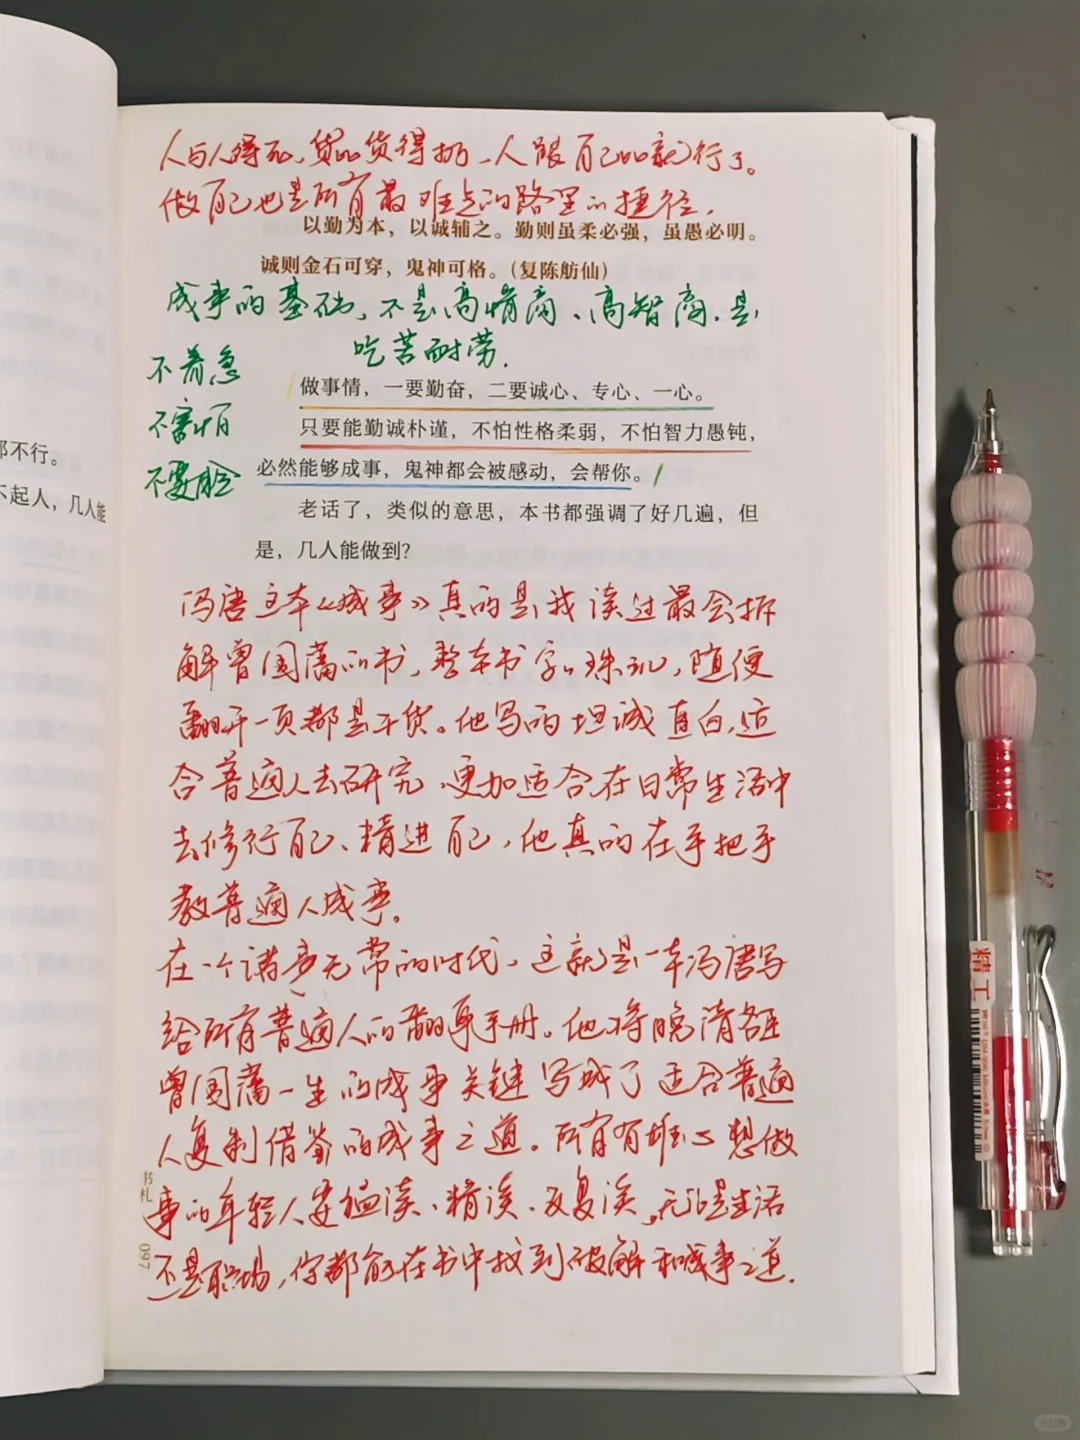 人与人得死，货比货得扔，人跟自己比就行了。
做自己也是所有最难走的路里的捷径。
以勤为本，以诚辅之。勤则虽柔必强，虽愚必明。
诚则金石可穿，鬼神可格。（复陈舫仙）
成事的基础，不是高情商、高智商，是
吃苦耐劳。
不着急
不害怕
不要脸
做事情，一要勤奋，二要诚心、专心、一心。
只要能勤诚朴谨，不怕性格柔弱，不怕智力愚钝，
必然能够成事，鬼神都会被感动，会帮你。
老话了，类似的意思，本书都强调了好几遍，但
是，几人能做到？
冯唐这本《成事》真的是我读过最会拆
解曾国藩的书，整本书字字珠玑，随便
翻开一页都是干货。他写的坦诚直白，适
合普通人去研究，更加适合在日常生活中
去修行自己、精进自己，他真的在手把手
教普通人成事。
在一个诸多无常的时代，这就是一本冯唐写
给所有普通人的翻身手册。他将晚清名臣
曾国藩一生的成事关键写成了适合普通
人复制借鉴的成事之道。所有有雄心想做
事的年轻人要温读、精读、反复读，无论是生活
还是职场，你都能在书中找到破解和成事之道。
书札
097
都不行。
不起人，几人能
精工
小红书